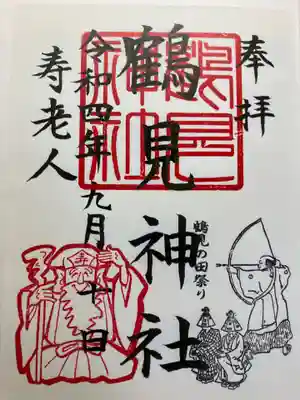 奉拝
鶴見神社
鶴見の田祭り
令和四年九月十日
寿老人